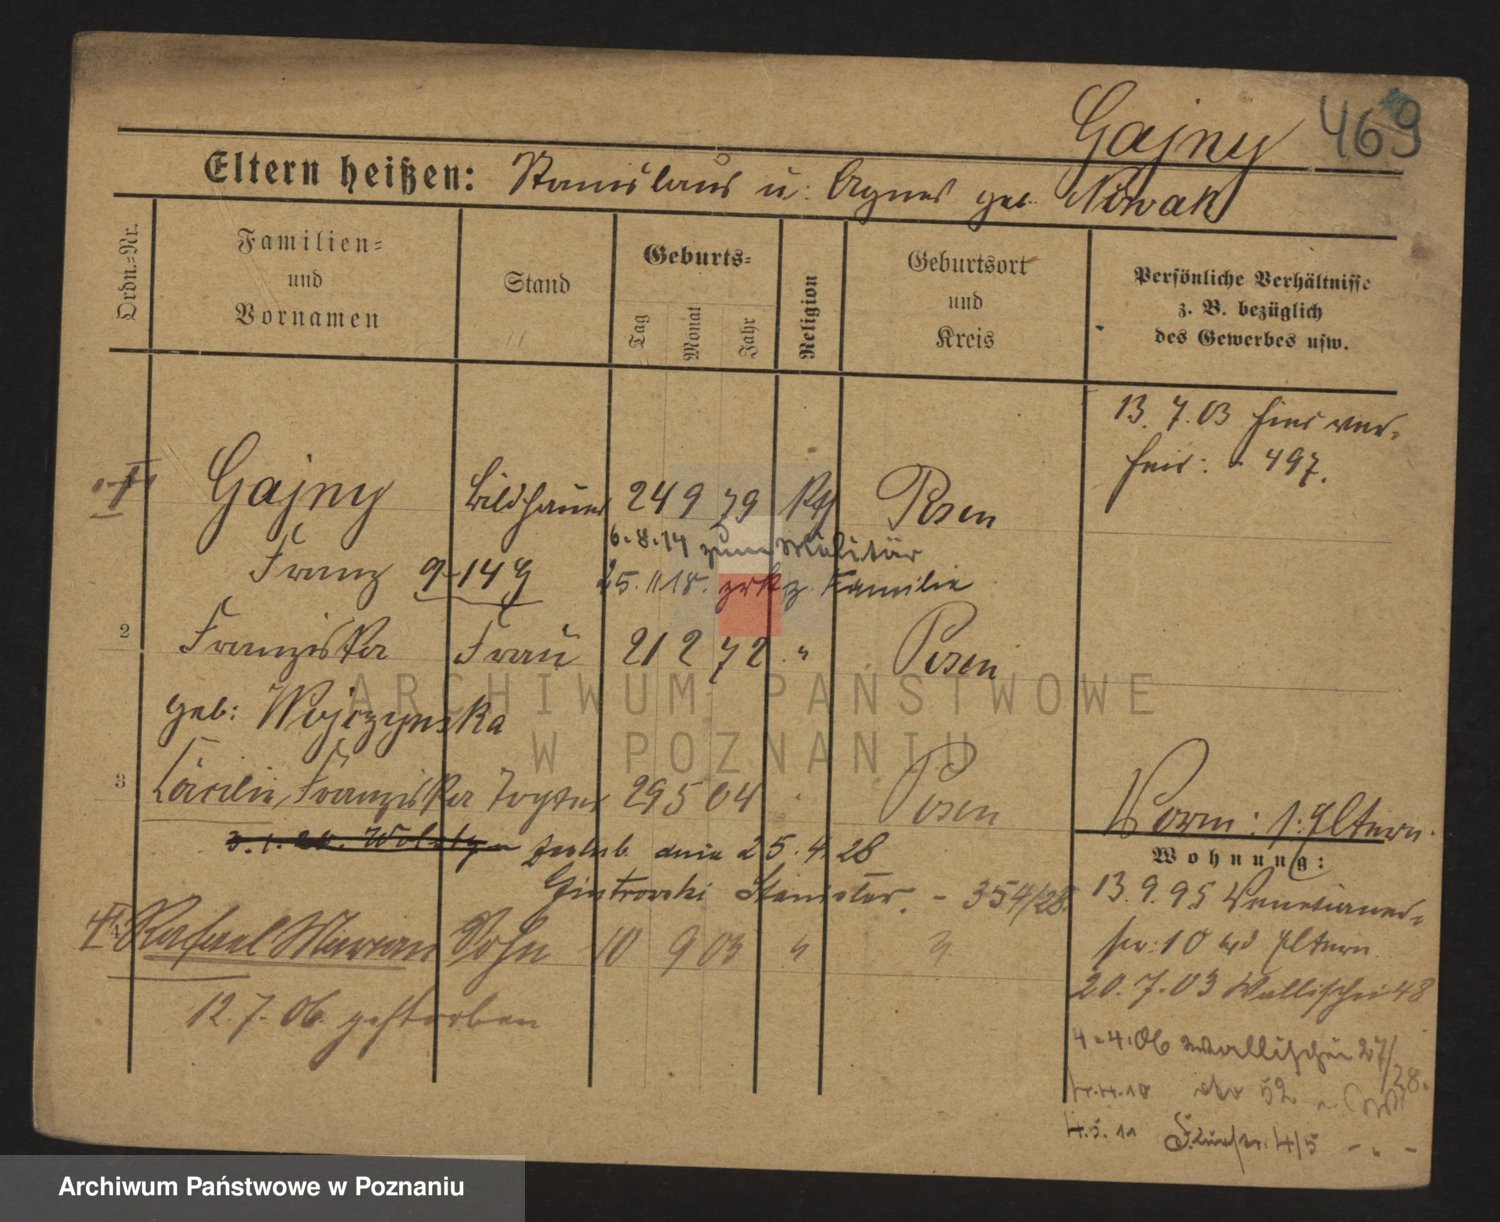 Gajny 469
Eltern heißen: Stanislaus u. Agnes geb. Nowak
Ordn.=Nr.
Familien=
und
Vornamen
Stand
Geburts=
Tag
Monat
Jahr
Religion
Geburtsort
und
Kreis
Persönliche Verhältnisse
z. B. bezüglich
des Gewerbes usw.
13. 7. 03 hier ver-
heir: 497.
Gajny Bildhauer 24 9 79 Kth Posen
6.8.14 zum Militär
Franz 9-149 25.11.18. zrk z. Familie
2 Franziska Frau 21 2 72 " Posen
geb: Wojczynska
3 Cäcilie Franziska Tochter 29 5 04 Posen
Norm: s. Eltern.
3.1.20. Wolstyn
verheir. 25.4.28
Wohnung:
Stanislaus. - 354/28.
13.9.95 Venetianer-
str: 10 Eltern
4 Rafael Marian Sohn 10 9 03 " "
20.7.03 Wallischei 48
12.7.06. gestorben
4.4.06 Wallischei 27/28.
4.4.10 dto 52
4.5.11 4/5 - " -
ARCHIWUM PAŃSTWOWE
W POZNANIU
Archiwum Państwowe w Poznaniu